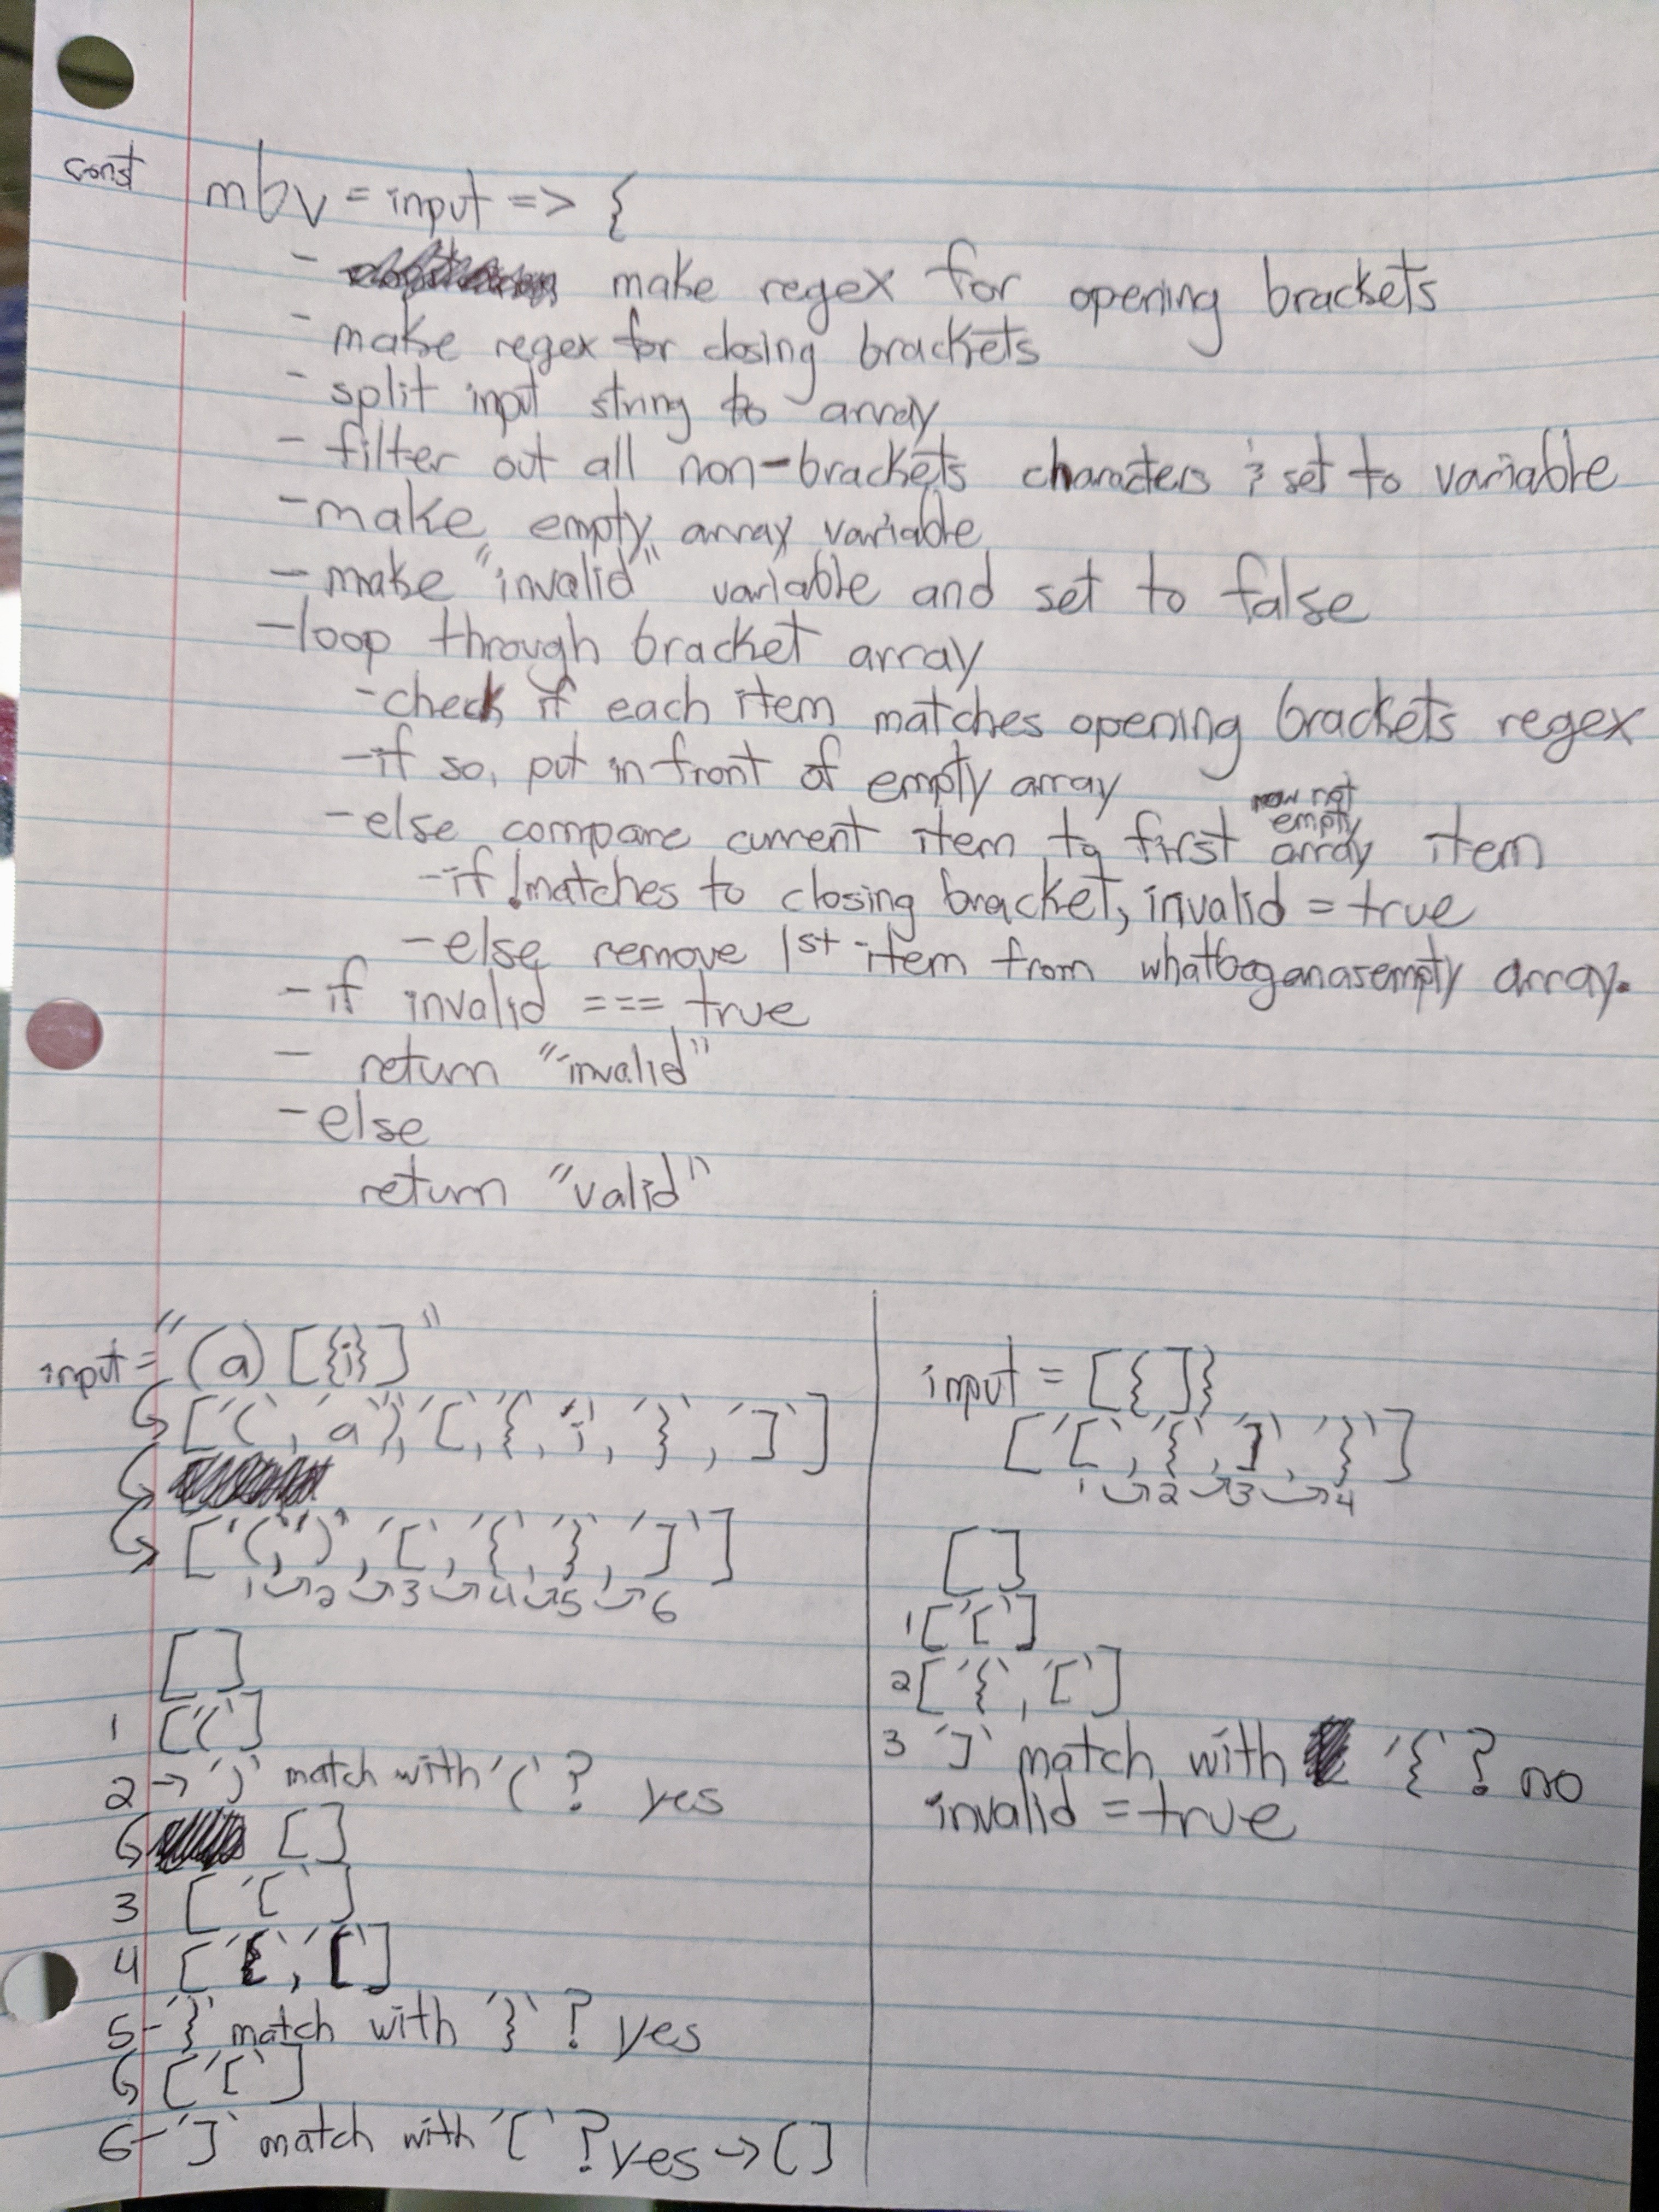 const mbv = input => {
- make regex for opening brackets
- make regex for closing brackets
- split input string to array
- filter out all non-brackets characters & set to variable
- make empty array variable
- make "invalid" variable and set to false
- loop through bracket array
- check if each item matches opening brackets regex
- if so, put in front of empty array
now not
empty
- else compare current item to first array item
- if !matches to closing bracket, invalid = true
- else remove 1st item from whatbeganasempty array.
- if invalid === true
- return "invalid"
- else
return "valid"
input = "(a)[{i}]"
['(', 'a', ')', '[', '{', 'i', '}', ']']
['(', ')', '[', '{', '}', ']']
1 2 3 4 5 6
[]
1 ['(']
2 → ')' match with '(' ? yes
[]
3 ['[']
4 ['{', '[']
5 - '}' match with '}' ? yes
['[']
6 - ']' match with '[' ? yes → []
input = [{]}
['[', '{', ']', '}']
1 2 3 4
[]
1 ['[']
2 ['{', '[']
3 ']' match with '{' ? no
invalid = true